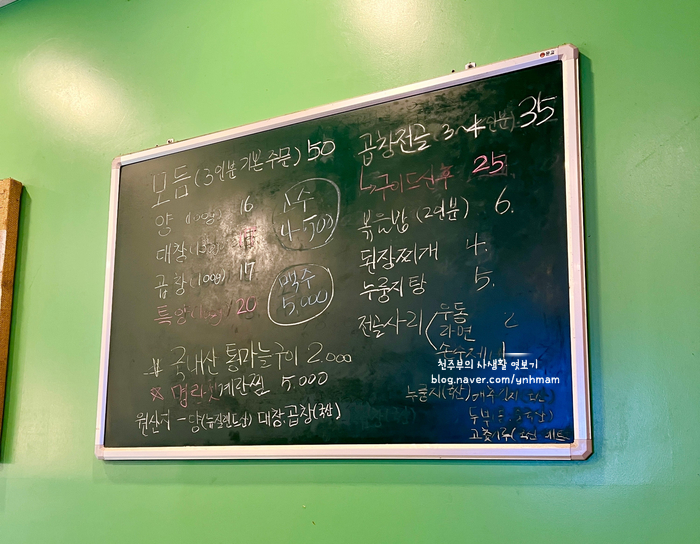 모듬 (3인분 기본 주문) 50
양 (100g) 16
대창 (100g)
곱창 (100g) 17
특양 (100g) 20
소수
4500
맥수
5,000
국내산 통마늘구이 2000
계란찜 5,000
원산지 - 양(뉴질랜드산) 대창 곱창(국산)
곱창전골 (3~4인분) 35
구이드신후 25
볶음밥 (2인분) 6.
된장찌개 4.
누룽지탕 5.
전골사리 ( 우동
라면
천주부의 사생활 엿보기
blog.naver.com/ynhmam
누룽지(국산)